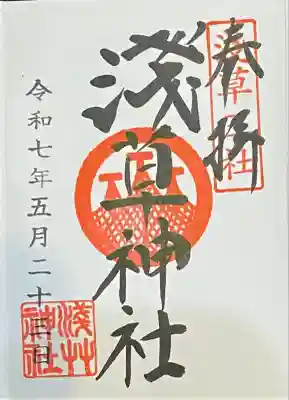 奉拝
浅草神社
淺草神社
令和七年五月二十三日
淺艸
神社